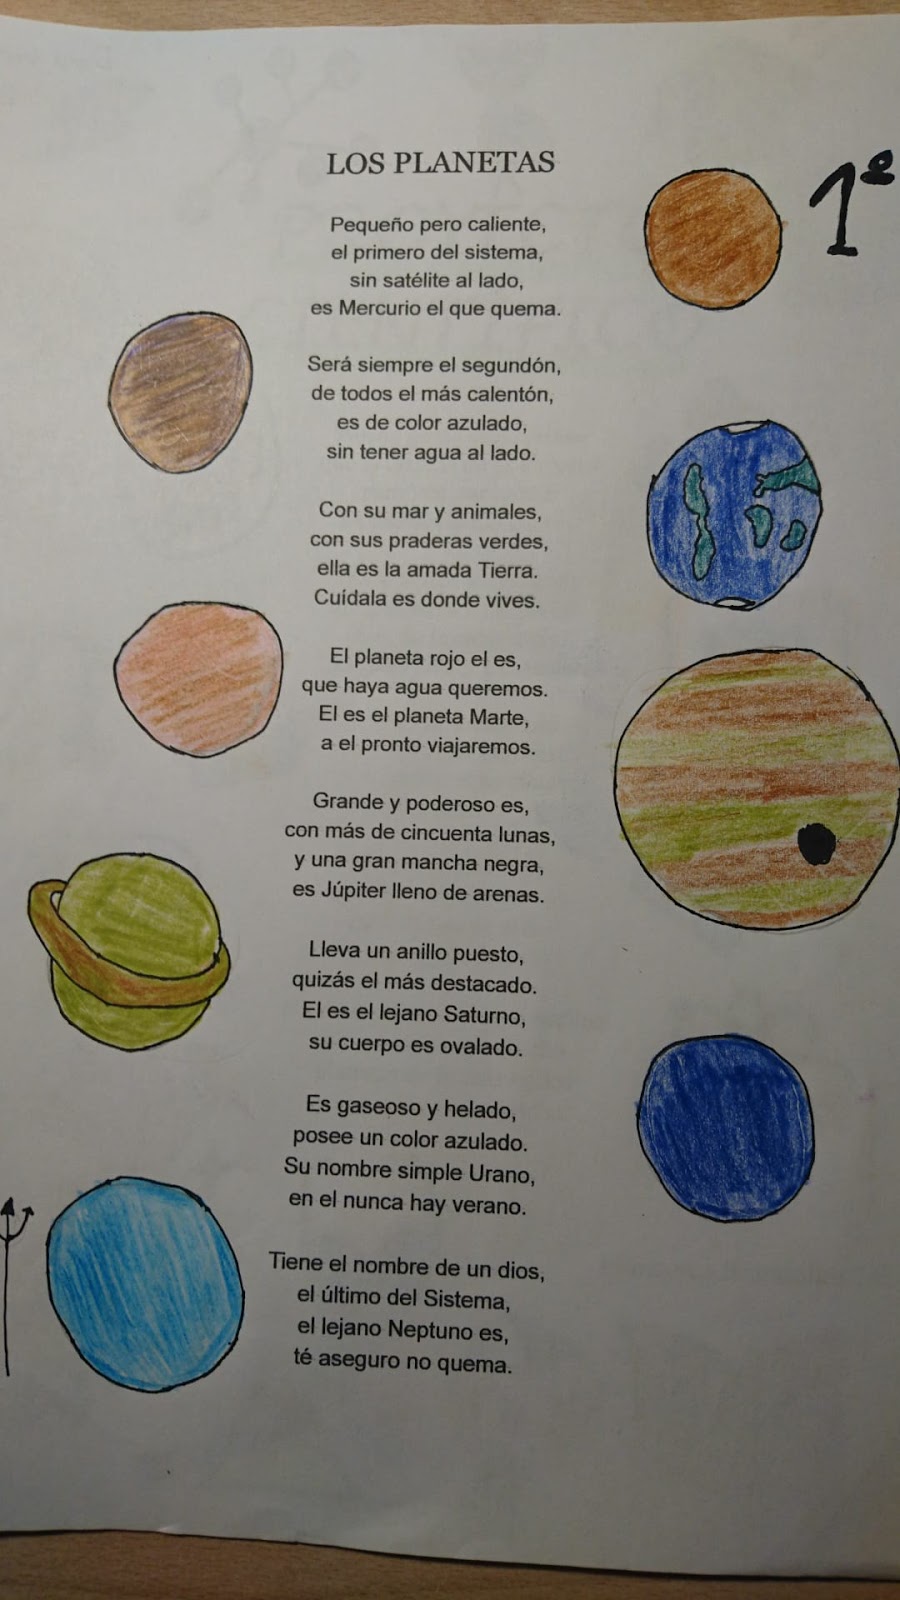 LOS PLANETAS
1º
Pequeño pero caliente,
el primero del sistema,
sin satélite al lado,
es Mercurio el que quema.
Será siempre el segundón,
de todos el más calentón,
es de color azulado,
sin tener agua al lado.
Con su mar y animales,
con sus praderas verdes,
ella es la amada Tierra.
Cuídala es donde vives.
El planeta rojo el es,
que haya agua queremos.
El es el planeta Marte,
a el pronto viajaremos.
Grande y poderoso es,
con más de cincuenta lunas,
y una gran mancha negra,
es Júpiter lleno de arenas.
Lleva un anillo puesto,
quizás el más destacado.
El es el lejano Saturno,
su cuerpo es ovalado.
Es gaseoso y helado,
posee un color azulado.
Su nombre simple Urano,
en el nunca hay verano.
Tiene el nombre de un dios,
el último del Sistema,
el lejano Neptuno es,
té aseguro no quema.